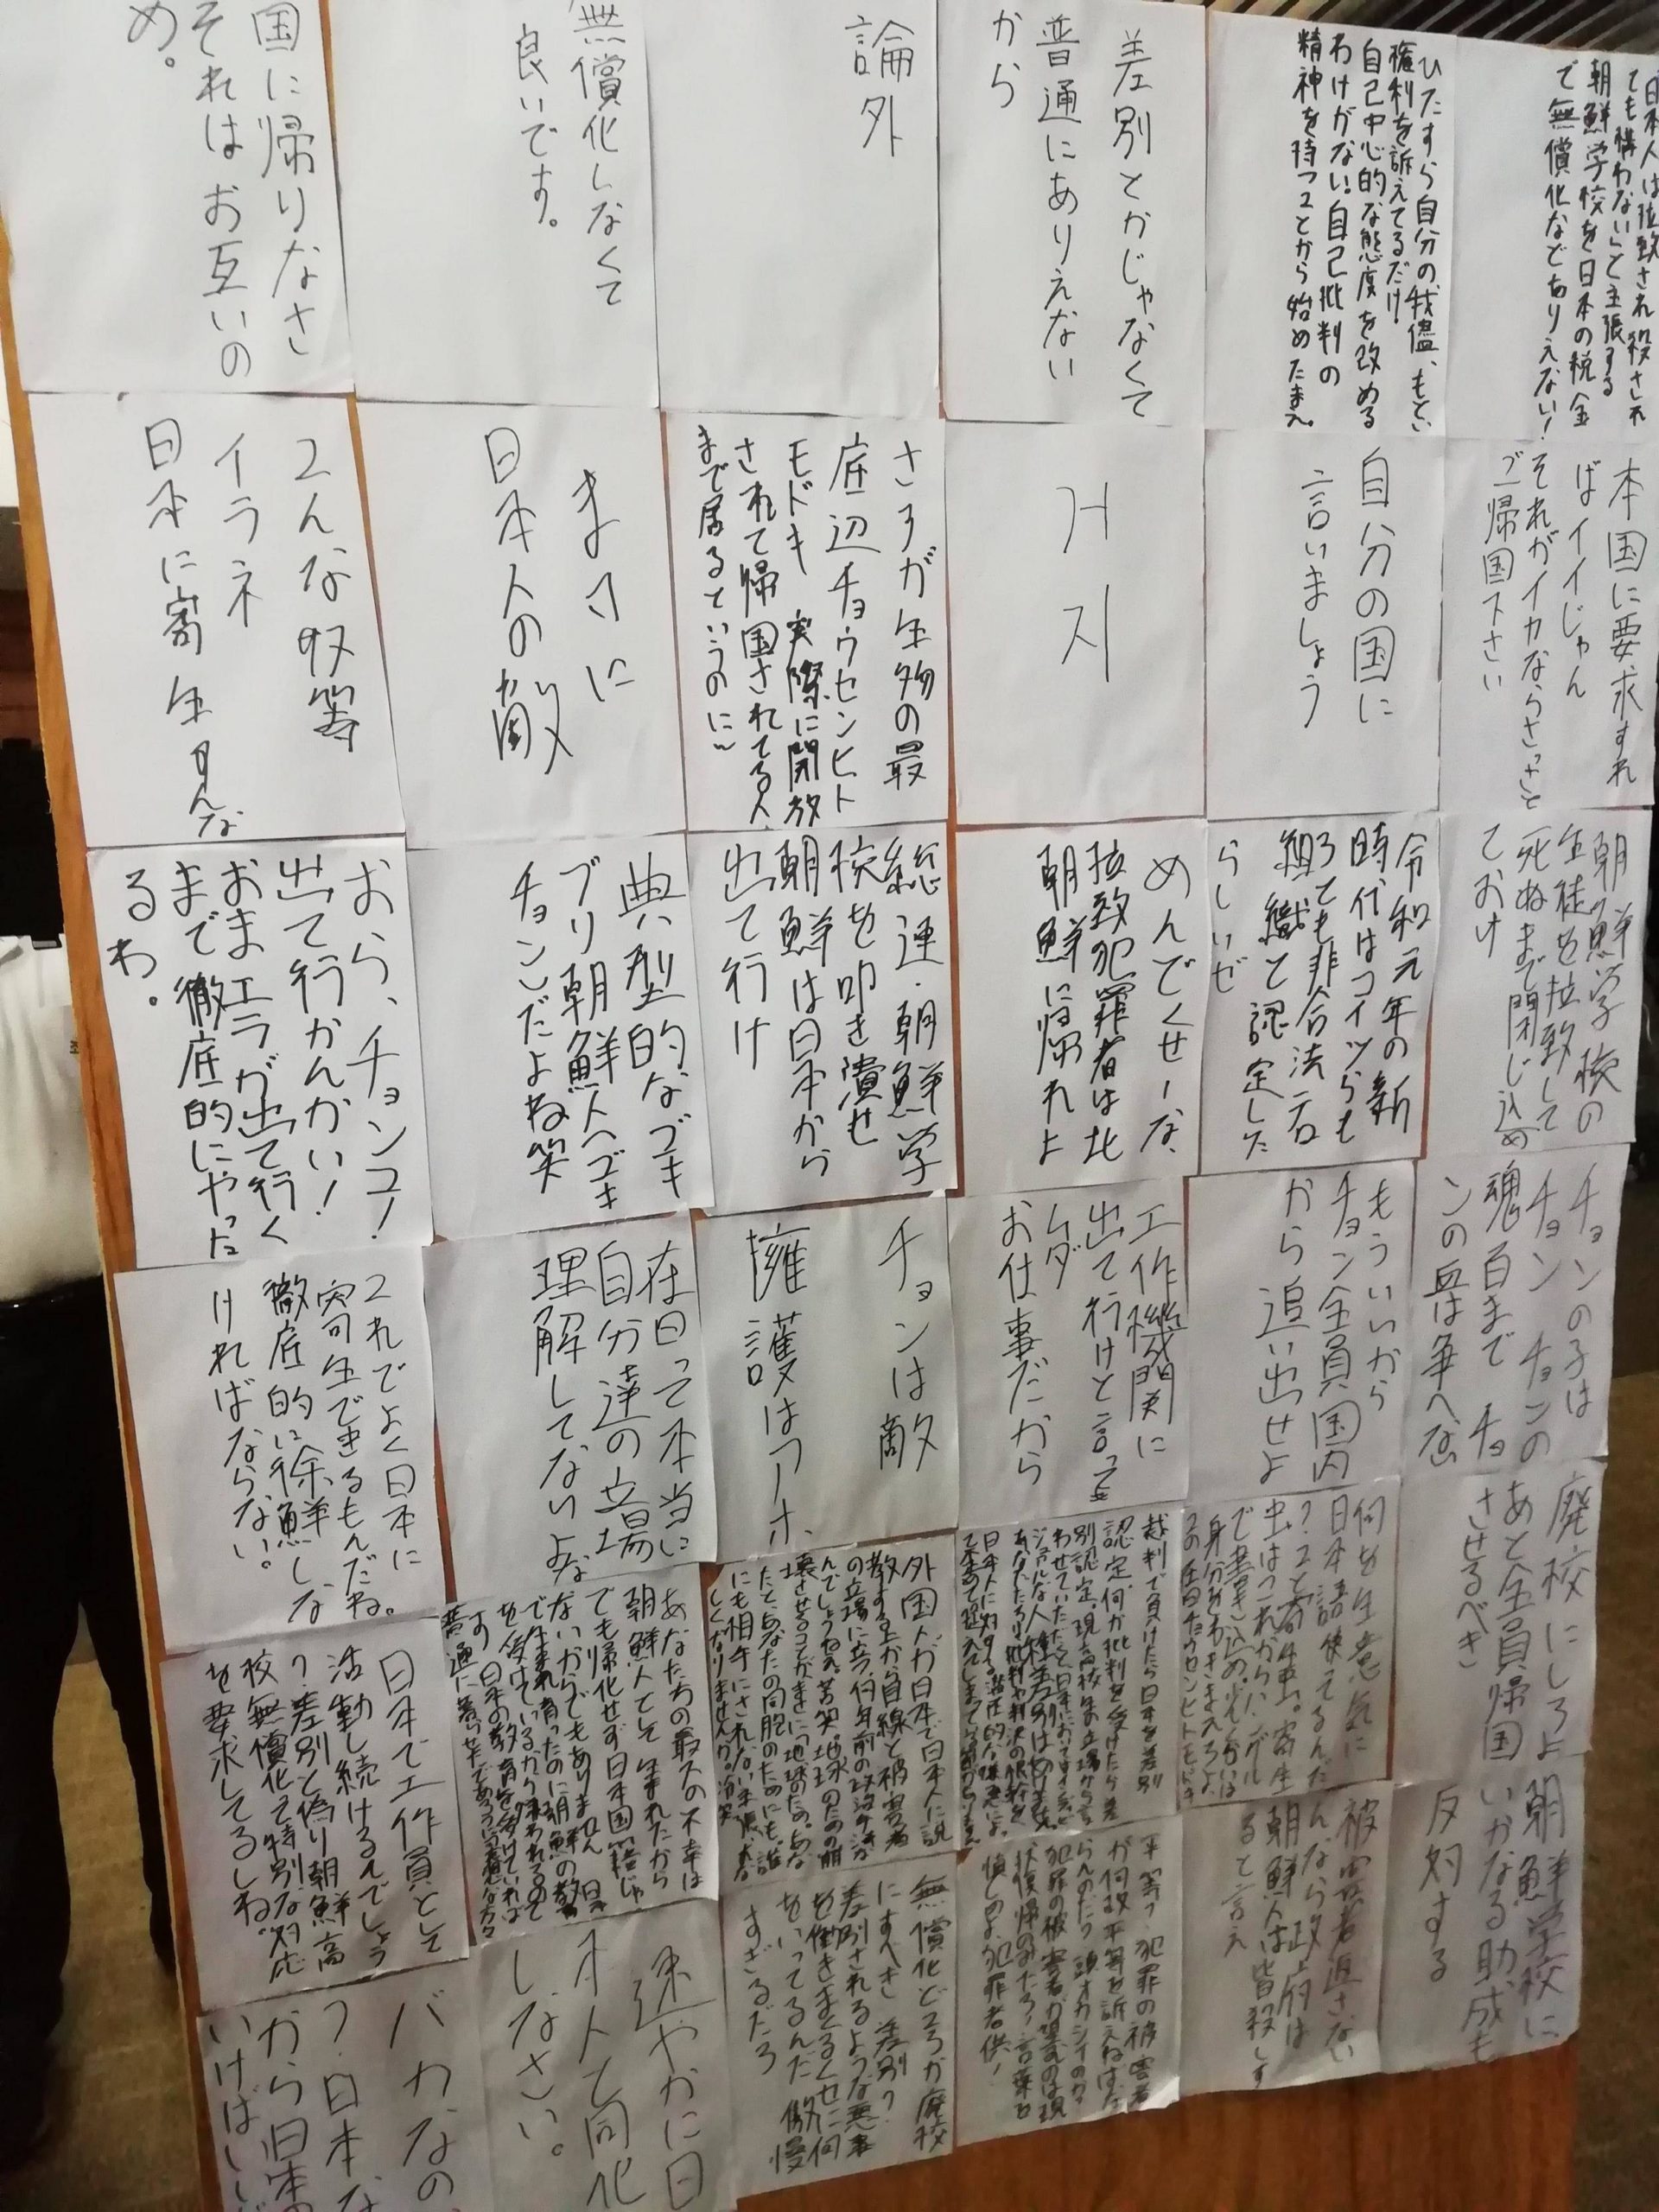 日本人は拉致され殺され
ても構わないと主張する
朝鮮学校を日本の税金
で無償化などありえない！
ひたすら自分の我儘、もとい
権利を訴えてるだけ
自己中心的な態度を改める
わけがない。自己批判の
精神を持つことから始めたまえ。
差別とかじゃなくて
普通にありえない
から
論外
無償化しなくて
良いです。
国に帰りなさ
それはお互いの
め。
本国に要求すれ
ばイイじゃん
それがイヤならさっさと
ご帰国下さい
自分の国に
言いましょう
거지
さすが生物の最
底辺チョウセンヒト
モドキ 実際に開放
されて帰国されてる人
まで居るていうのに
まさに
日本人の敵
こんな奴等
イラネ
日本に寄生すんな
朝鮮学校の
生徒を拉致して
死ぬまで閉じ込め
ておけ
令和元年の新
時代はコイツらも
とても非合法
組織て認定した
らしいぜ
めんでくせーな、
拉致犯罪者は北
朝鮮に帰れよ
総連・朝鮮学
校を叩き潰せ
朝鮮は日本から
出て行け
典型的なゴキ
ブリ朝鮮人へゴキ
チョンだよね笑
おら、チョンコ！
出て行かんかい！
おまエラが出て行く
まで徹底的にやった
るわ。
チョンの子は
チョン チョンの
魂百まで チョ
ンの血は争へない
もういいから
チョン全員国内
から追い出せよ
工作機関に
出て行けと言っても
ムダ
お仕事だから
チョンは敵
擁護はアホ
在日って本当に
自分達の立場
理解してないよな
これでよく日本に
寄生できるもんだね。
徹底的に除鮮しな
ければならない。
廃校にしろよ
あと全員帰国
させるべき
何を生意気に
日本語使ってるんだ
？こと寄生虫。寄生
虫はこれからハングル
で書き込め。
身分をわきまえろよ、
この在日チョウセンヒトモドキ
裁判で負けたら日本を差別
認定、何か批判を受けたら差
別認定。
外国人が日本で日本人に説
教する
の立場に立つ、何年前の政治手法
んでしょうねえ。苦笑
壊させるコブがまさに「地球のため。
たと、あなたの同胞のためにも。誰
にも相手にされない
しくなりませんか。冷笑
あなたたちの最大の不幸は
朝鮮人として生まれたから
でも帰化せず日本国籍じゃ
ないからでもありません 日本
で生まれ育ったのに朝鮮の教育
を受けているから
す 日本の教育を受けていれば
普通に暮らせたであろう
日本で工作員として
活動し続けるんでしょう
？差別と偽り朝鮮高
校無償化て特別な対応
を要求してるしね。
朝鮮学校に
いかなる助成も
反対する
被害者返さない
んなら政府は
朝鮮人は皆殺しす
ると言え
平等？犯罪の被害者
が何故平等を訴えねばな
らんのだ？頭オカシイのか？
犯罪の被害者が望むのは現
状復帰のみだろ？言葉を
慎しめよ、犯罪者供！
無償化どころか廃校
にすべき 差別？
差別されるような悪事
を働きまくるくせに何
をいってるんだ 傲慢
すぎるだろ
速やかに日
本人て同化
しなさい。
バカなの、
？日本な
から日本
いけばいい